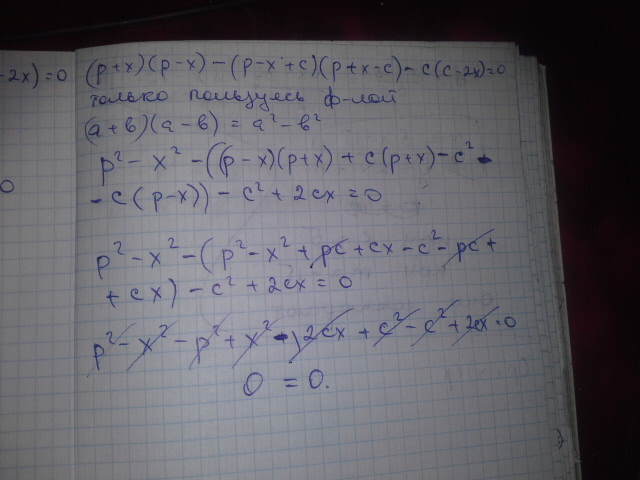 -2x) = 0
(p+x)(p-x) - (p-x+c)(p+x-c) - c(c-2x)=0
только пользуясь ф-лой
(a+b)(a-b) = a² - b²
p² - x² - ((p-x)(p+x) + c(p+x) - c² -
- c(p-x)) - c² + 2cx = 0
0
p² - x² - (p² - x² + pc + cx - c² - pc +
+ cx) - c² + 2cx = 0
p² - x² - p² + x² - 2cx + c² - c² + 2cx = 0
0 = 0.